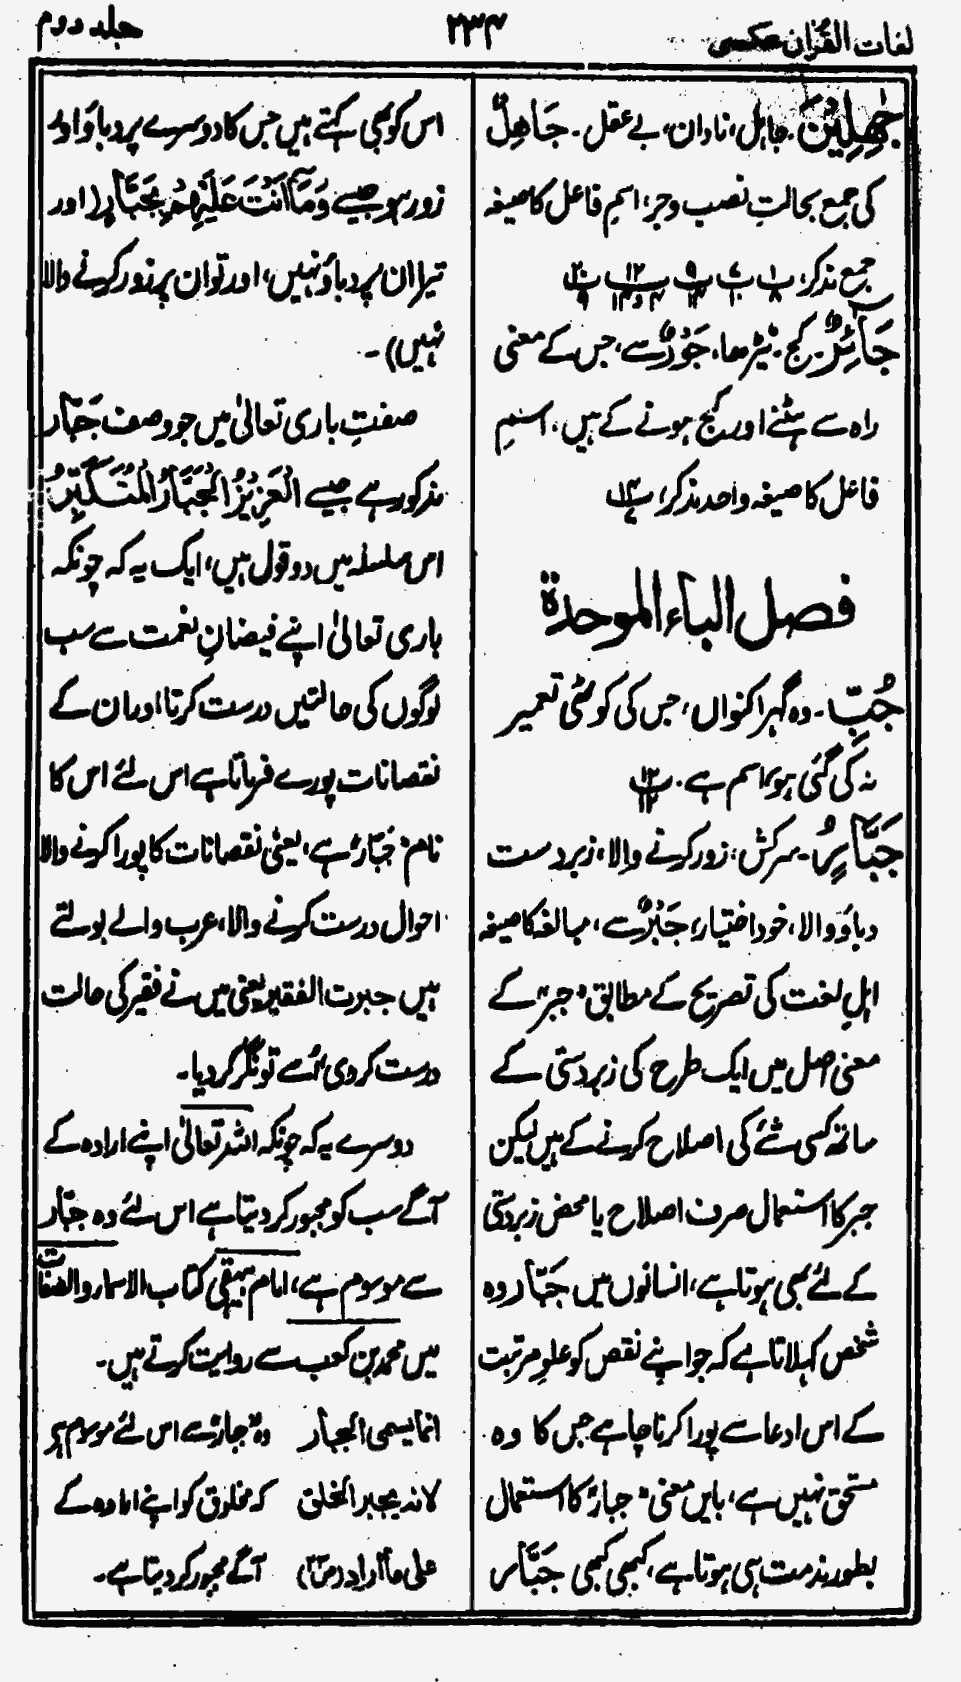 لغات القرآن عکسی
۲۳۴
جلد دوم
جٰهِلِیْنَ ۔ جاہل، نادان، بے عقل ۔ جَاهِلٌ
کی جمع بحالتِ نصب وجر، اسم فاعل کا صیغہ
جمع مذکر،
جَآئِرٌ ۔ کج ۔ ٹیڑھا، جَوْرٌ سے، جس کے معنی
راہ سے ہٹنے اور کج ہونے کے ہیں، اسمِ
فاعل کا صیغہ واحد مذکر،
فصل الباء الموحدة
جُبِّ ۔ وہ گہرا کنواں، جس کی کوٹھی تعمیر
نہ کی گئی ہو، اسم ہے ۔ پ۱۲
جَبَّارٍ ۔ سرکش، زور کرنے والا، زبردست
دباؤ والا، خود اختیار، جَبْرٌ سے، مبالغہ کا صیغہ
اہلِ لغت کی تصریح کے مطابق "جبر" کے
معنی اصل میں ایک طرح کی زبردستی کے
ساتھ کسی شئے کی اصلاح کرنے کے ہیں لیکن
جبر کا استعمال صرف اصلاح یا محض زبردستی
کے لئے بھی ہوتا ہے، انسانوں میں جَبَّار وہ
شخص کہلاتا ہے کہ جو اپنے نقص کو علوِ مرتبت
کے اس ادعا سے پورا کرنا چاہے جس کا وہ
مستحق نہیں ہے، بایں معنی "جبار" کا استعمال
بطور مذمت ہی ہوتا ہے، کبھی کبھی جَبَّار
اس کو بھی کہتے ہیں جس کا دوسرے پر دباؤ اور
زور ہو جیسے وَمَآ اَنْتَ عَلَیْهِمْ بِجَبَّارٍ (اور
تیرا ان پر دباؤ نہیں، اور تو ان پر زور کرنے والا
نہیں) ۔
صفتِ باری تعالیٰ میں جو وصف جَبَّار
مذکور ہے جیسے الْعَزِیْزُ الْجَبَّارُ الْمُتَکَبِّرُ
اس سلسلہ میں دو قول ہیں، ایک یہ کہ چونکہ
باری تعالیٰ اپنے فیضانِ نعمت سے سب
لوگوں کی حالتیں درست کرتا، اور ان کے
نقصانات پورے فرماتا ہے اس لئے اس کا
نام "جَبَّار" ہے، یعنی نقصانات کا پورا کرنے والا
احوال درست کرنے والا، عرب والے بولتے
ہیں جبرت الفقیر یعنی میں نے فقیر کی حالت
درست کر دی اُسے تونگر کر دیا ۔
دوسرے یہ کہ چونکہ اللہ تعالیٰ اپنے ارادہ کے
آگے سب کو مجبور کر دیتا ہے اس لئے وہ جبّار
سے موسوم ہے، امام بیہقی کتاب الاسماء والصفات
میں محمد بن کعب سے روایت کرتے ہیں ۔
انما یسمی الجبار وہ "جبار" سے اس لئے موسوم ہے
لانہ یجبر الخلق کہ مخلوق کو اپنے ارادہ کے
علی ما اراد (ص۲۳) آگے مجبور کر دیتا ہے ۔